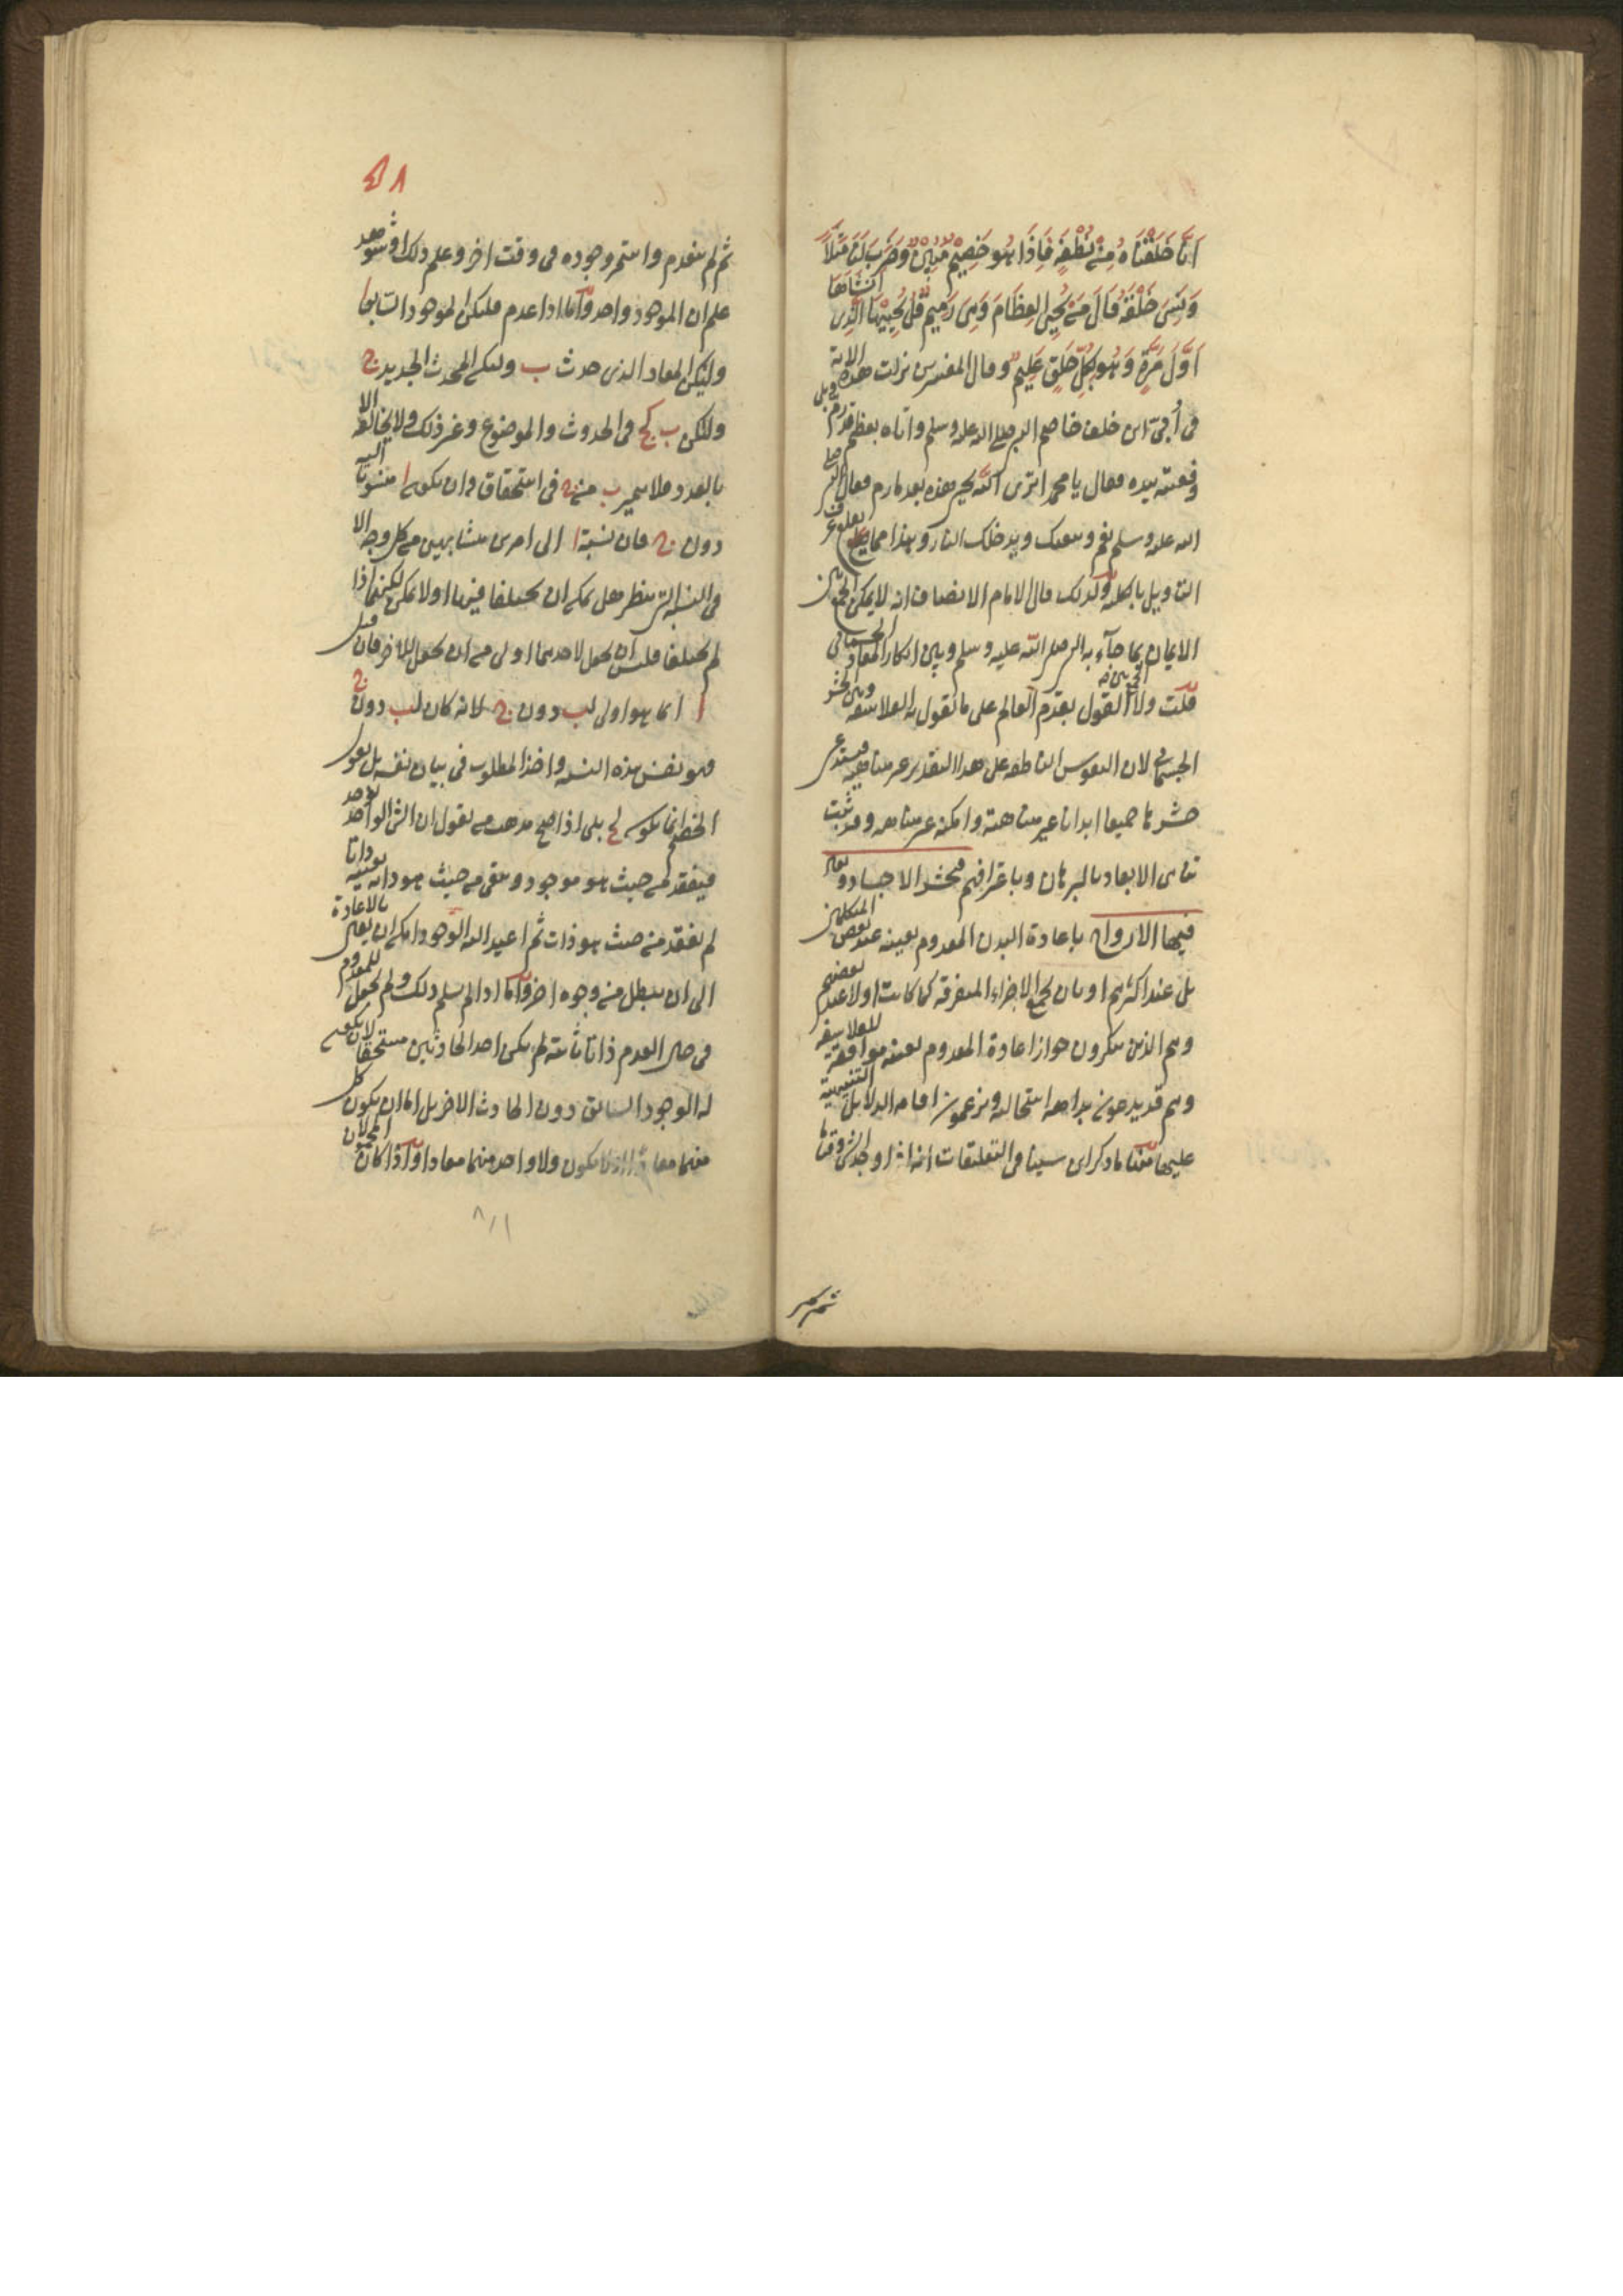 اَنَّا خَلَقْنَاهُ مِنْ نُطْفَةٍ فَاِذَا هُوَ خَصِيْمٌ مُبِيْنٌ وَضَرَبَ لَنَا مَثَلًا
وَنَسِيَ خَلْقَهُ قَالَ مَنْ يُحْيِي العِظَامَ وَهِيَ رَمِيمٌ قُلْ يُحْيِيْهَا الَّذِي اَنْشَاَهَا
اَوَّلَ مَرَّةٍ وَهُوَ بِكُلِّ خَلْقٍ عَلِيمٌ وقال المفسرون نزلت هذه الاية
فى اُبىّ ابن خلف خاصم النبى صلى الله عليه وسلم واتاه بعظم قد رم وبلى
ففتته بيده فقال يا محمد اترى الله يحيى هذه بعد ما رم فقال النبى صلى
الله عليه وسلم نعم ويبعثك ويدخلك النار وهذا مما يقلع عرق
التاويل بالكلية ولذلك قال الامام الانصاف انه لا يمكن الجمع بين
الايمان بما جاء به النبى صلى الله عليه وسلم وبين انكار المعاد الجسمانى
قلت ولا القول بقدم العالم على ما تقول به الفلاسفة وبين الحشر
الجسمانى لان النفوس الناطقة على هذا التقدير غير متناهية فيستدعى
حشرها جميعا ابدانا غير متناهية وامكنة غير متناهية وقد ثبت
تناهى الابعاد بالبرهان وباعترافهم فحشر الاجساد و
فيها الارواح باعادة البدن المعدوم بعينه عند بعض المتكلمين
بل عند اكثرهم او بان يجمع الاجزاء المتفرقة كما كانت اولا عند بعضهم
وهم الذين ينكرون جواز اعادة المعدوم بعينه موافقة للفلاسفة
وهم قد يدعون بداهة استحالته ويزعمون اقامة الدلايل التنبيهية
عليها منها ما ذكر ابن سينا فى التعليقات انه اذا وجد الشئ وقتا
ثم لم
٤٨
ثم لم ينعدم واستمر وجوده فى وقت اخر وعلم ذلك او شوهد
علم ان الموجود واحد واما اذا عدم فليكن الموجود السابق ا
وليكن المعاد الذى حدث ب وليكن المحدث الجديد ج
وليكن ب كج فى الحدوث والموضوع وغير ذلك ولا يخالفه الا
بالعدد فلا يتميز ب من ج فى استحقاق ان يكون ا منسوبا اليه
دون ج فان نسبة ا الى امرين متشابهين من كل وجه الا
فى النسبة التى ينظر هل يمكن ان يختلفا فيها او لا يمكن لكنهما اذا
لم يختلفا فليس ان يجعل لاحدهما اولى من ان يجعل للاخر فان قيل
انما هو اولى لب دون ج لانه كان لب دون ج
فهو نفس هذه النسبة واخذ المطلوب فى بيان نفسه بل يقول
الخصم انما يكون لج بلى اذا صح مذهب من يقول ان الشئ الواحد يوجد
فيفقد من حيث هو موجود ويبقى من حيث هو ذاته بعينه ذاتا
لم يفقد من حيث هو ذات ثم اعيد اليه الوجود امكن ان يقال بالاعادة
الى ان يبطل من وجوه اخر واما اذا لم يسلم ذلك ولم يجعل للمعدوم
فى حال العدم ذاتا ثابتة لم يكن احد الحادثين مستحقا لان يكون
له الوجود السابق دون الحادث الاخر بل اما ان يكون كل
منهما معادا او لا يكون ولا واحد منهما معادا واذا كان المحمولان